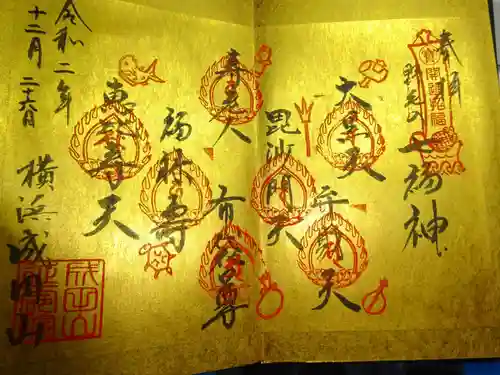 奉拝
野毛の
七福神
大黒天
弁財天
毘沙門天
寿老人
布袋尊
福禄寿
恵比寿天
令和二年
十二月二十六日
横浜成田山